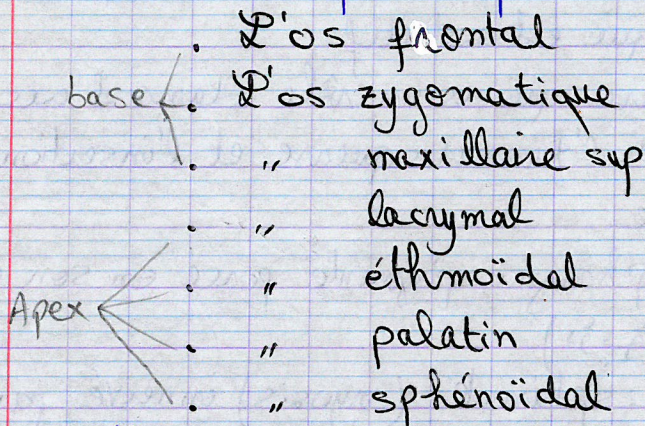 . L'os frontal
base . L'os zygomatique
. " maxillaire sup
. " lacrymal
. " éthmoïdal
Apex
. " palatin
. " sphénoïdal